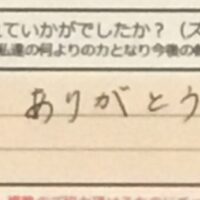 していかがでしたか？（ス
私達の何よりの力となり今後の
ありがとう